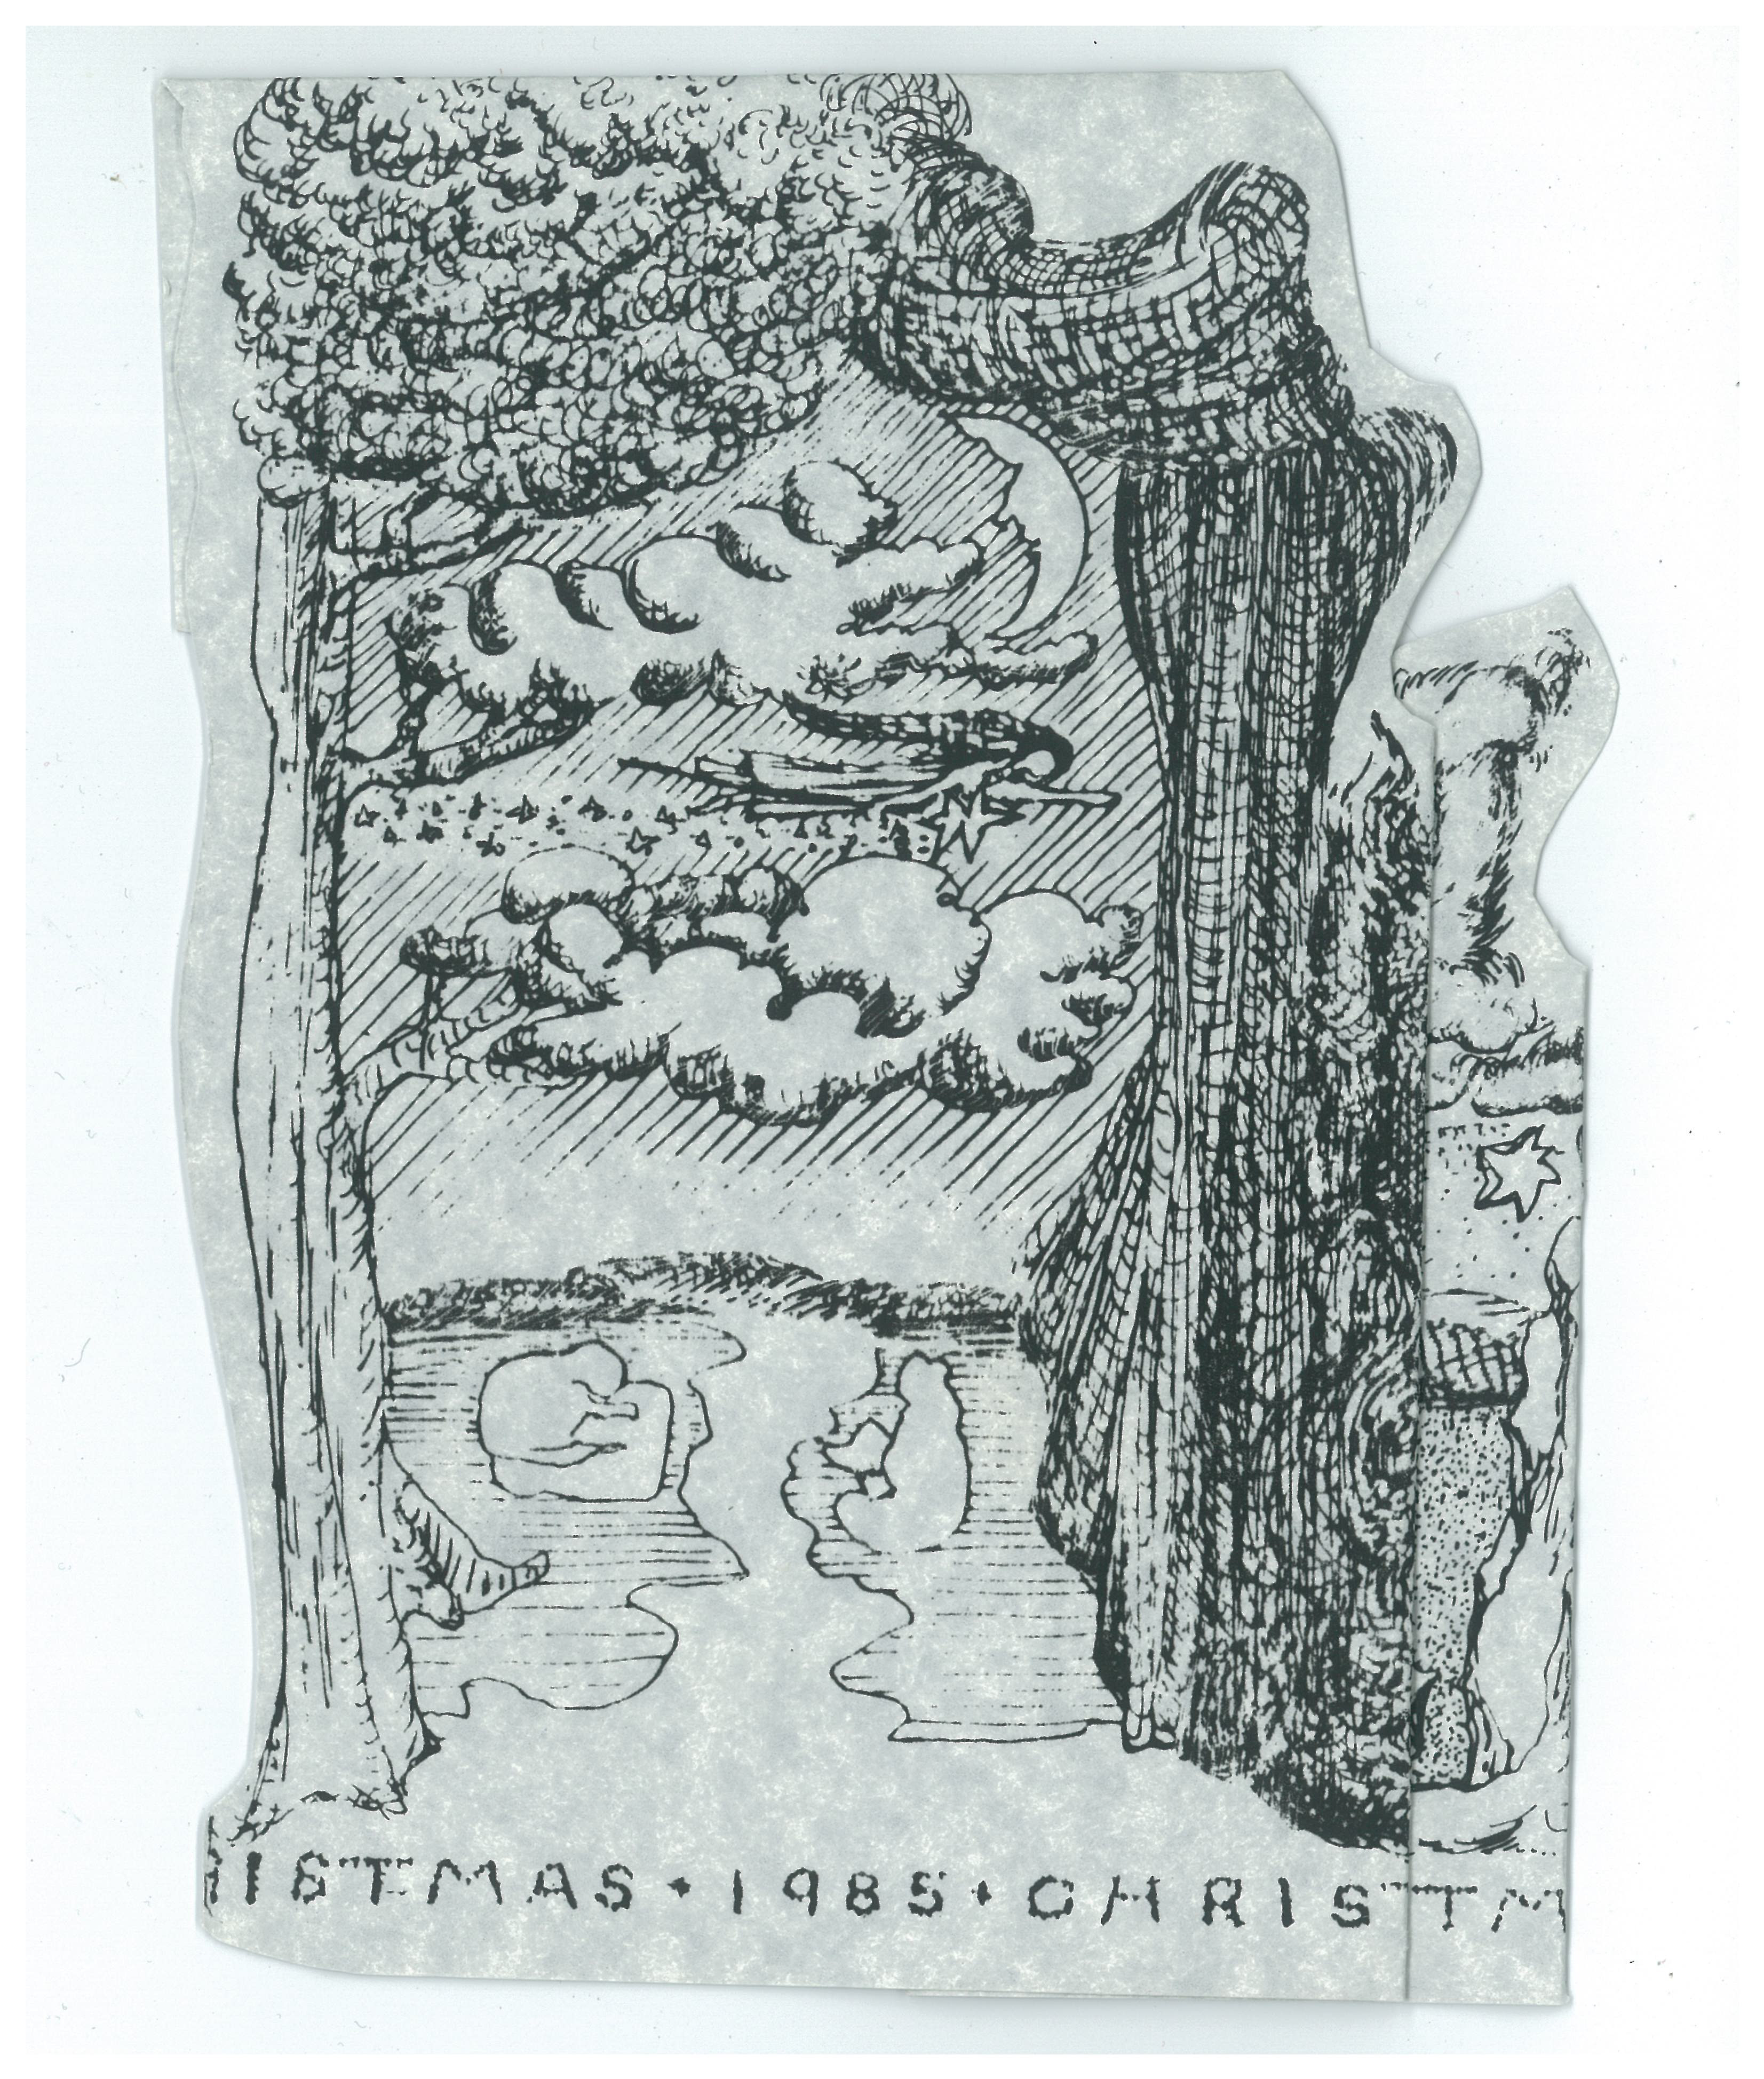 RISTMAS • 1985 • CHRISTM